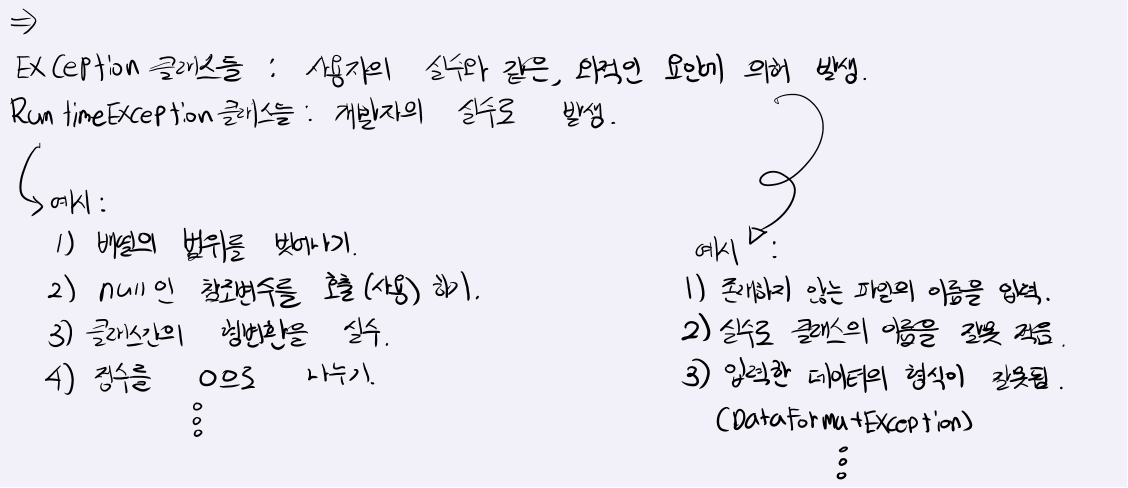 ⇒
Exception 클래스들 : 사용자의 실수와 같은, 외적인 요인에 의해 발생.
RuntimeException 클래스들 : 개발자의 실수로 발생.
예시 :
1) 배열의 범위를 벗어나기.
2) null인 참조변수를 호출(사용)하기.
3) 클래스간의 형변환을 실수.
4) 정수를 0으로 나누기.
예시 :
1) 존재하지 않는 파일의 이름을 입력.
2) 실수로 클래스의 이름을 잘못 적음.
3) 입력한 데이터의 형식이 잘못됨.
(DataFormatException)